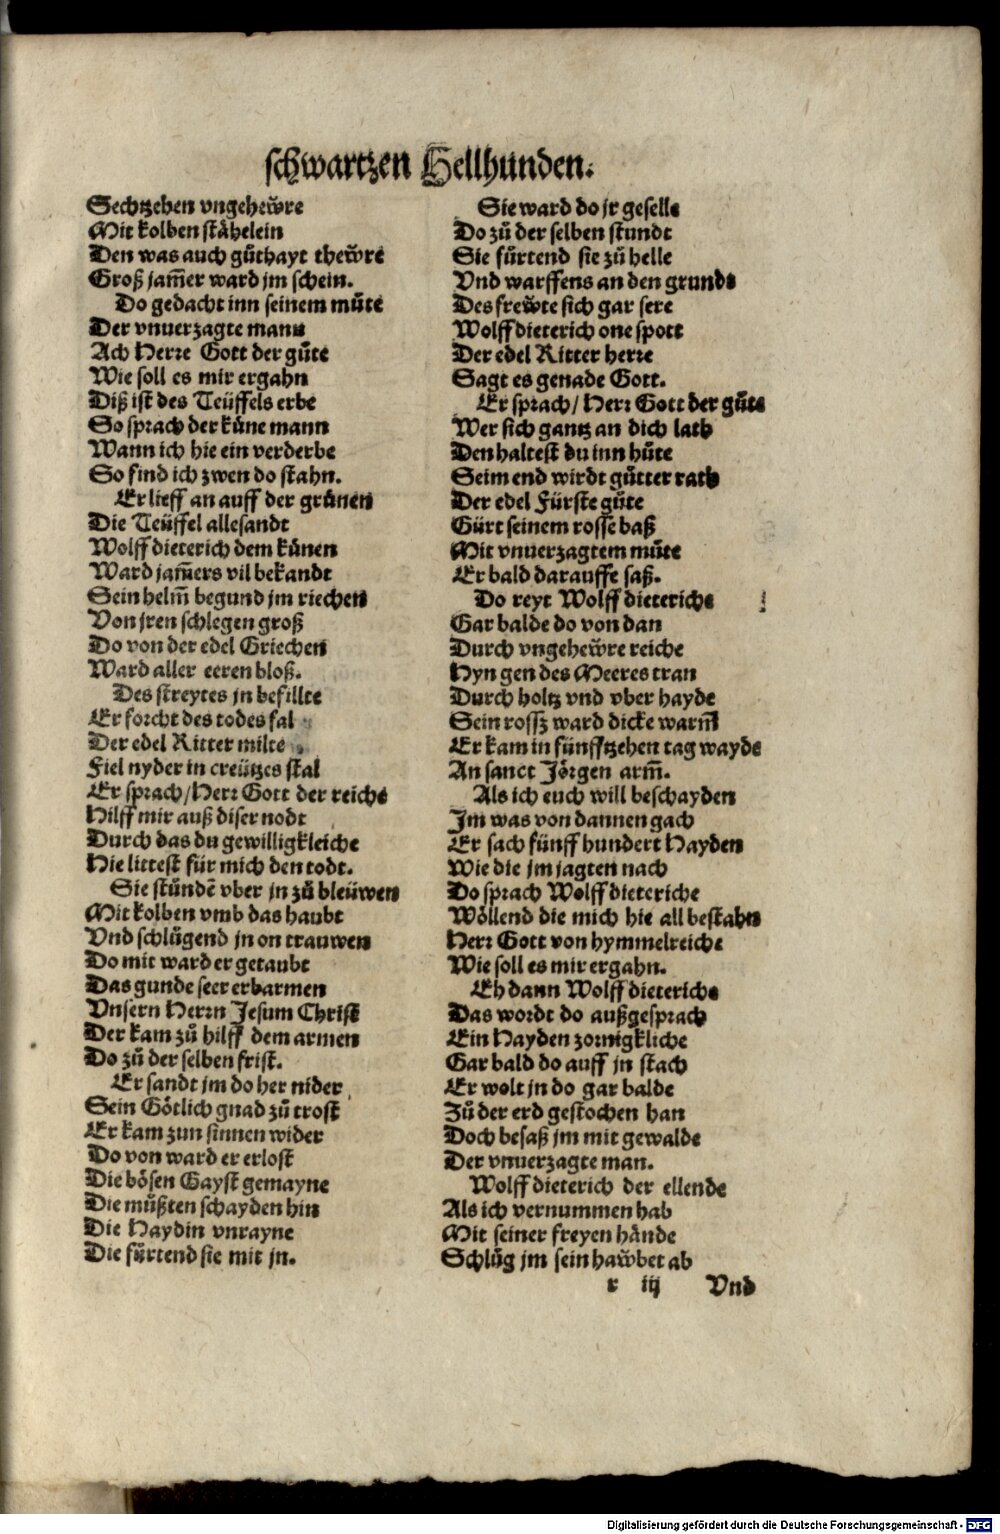 schwartzen Hellhunden.
Sechtzehen vngehewͤre
Mit kolben staͤhelein
Den was auch guͤthayt thewͤre
Groß jam̃er ward jm schein.
Do gedacht inn seinem muͤte
Der vnuerzagte mann
Ach Herre Gott der guͤte
Wie soll es mir ergahn
Diß ist des Teüffels erbe
So sprach der küne mann
Wann ich hie ein verderbe
So find ich zwen do stahn.
Er lieff an auff der gruͤnen
Die Teüffel allesandt
Wolff dieterich dem kuͤnen
Ward jam̃ers vil bekandt
Sein helm̃ begund jm riechen
Von jren schlegen groß
Do von der edel Griechen
Ward aller eeren bloß.
Des streytes jn befillte
Er forcht des todes fal
Der edel Ritter milte
Fiel nyder in creützes stal
Er sprach/Herr Gott der reiche
Hilff mir auß diser nodt
Durch das du gewilligkleiche
Hie littest für mich den todt.
Sie stuͤndẽ vber jn zuͤ bleüwen
Mit kolben vmb das haubt
Vnd schluͤgend jn on trauwen
Do mit ward er getaubt
Das gunde seer erbarmen
Vnsern Herrn Jesum Christ
Der kam zuͤ hilff dem armen
Do zuͤ der selben frist.
Er sandt jm do her nider
Sein Goͤtlich gnad zuͤ trost
Er kam zun sinnen wider
Do von ward er erlost
Die boͤsen Gayst gemayne
Die muͤßten schayden hin
Die Haydin vnrayne
Die fuͤrtend sie mit jn.
Sie ward do jr geselle
Do zuͤ der selben stundt
Sie fuͤrtend sie zuͤ helle
Vnd warffens an den grunde
Des frewͤte sich gar sere
Wolff dieterich one spott
Der edel Ritter herre
Sagt es genade Gott.
Er sprach/Herr Gott der guͤte
Wer sich gantz an dich lath
Den haltest du inn huͤte
Seim end wirdt guͤtter rath
Der edel Fürste guͤte
Gürt seinem rosse baß
Mit vnuerzagtem muͤte
Er bald darauffe saß.
Do reyt Wolff dieteriche
Gar balde do von dan
Durch vngehewͤre reiche
Hyn gen des Meeres tran
Durch holtz vnd vber hayde
Sein rossz ward dicke warm̃
Er kam in fünfftzehen tag wayde
An sanct Joͤrgen arm̃.
Als ich euch will beschayden
Jm was von dannen gach
Er sach fünff hundert Hayden
Wie die jm jagten nach
Do sprach Wolff dieteriche
Woͤllend die mich hie all bestahn
Herr Gott von hymmelreiche
Wie soll es mir ergahn.
Eh dann Wolff dieteriche
Das wordt do außgesprach
Ein Hayden zornigkliche
Gar bald do auff jn stach
Er wolt jn do gar balde
Zuͤ der erd gestochen han
Doch besaß jm mit gewalde
Der vnuerzagte man.
Wolff dieterich der ellende
Als ich vernummen hab
Mit seiner freyen haͤnde
Schluͤg jm sein hawͤbet ab
r iij Vnd
Digitalisierung gefördert durch die Deutsche Forschungsgemeinschaft - DFG